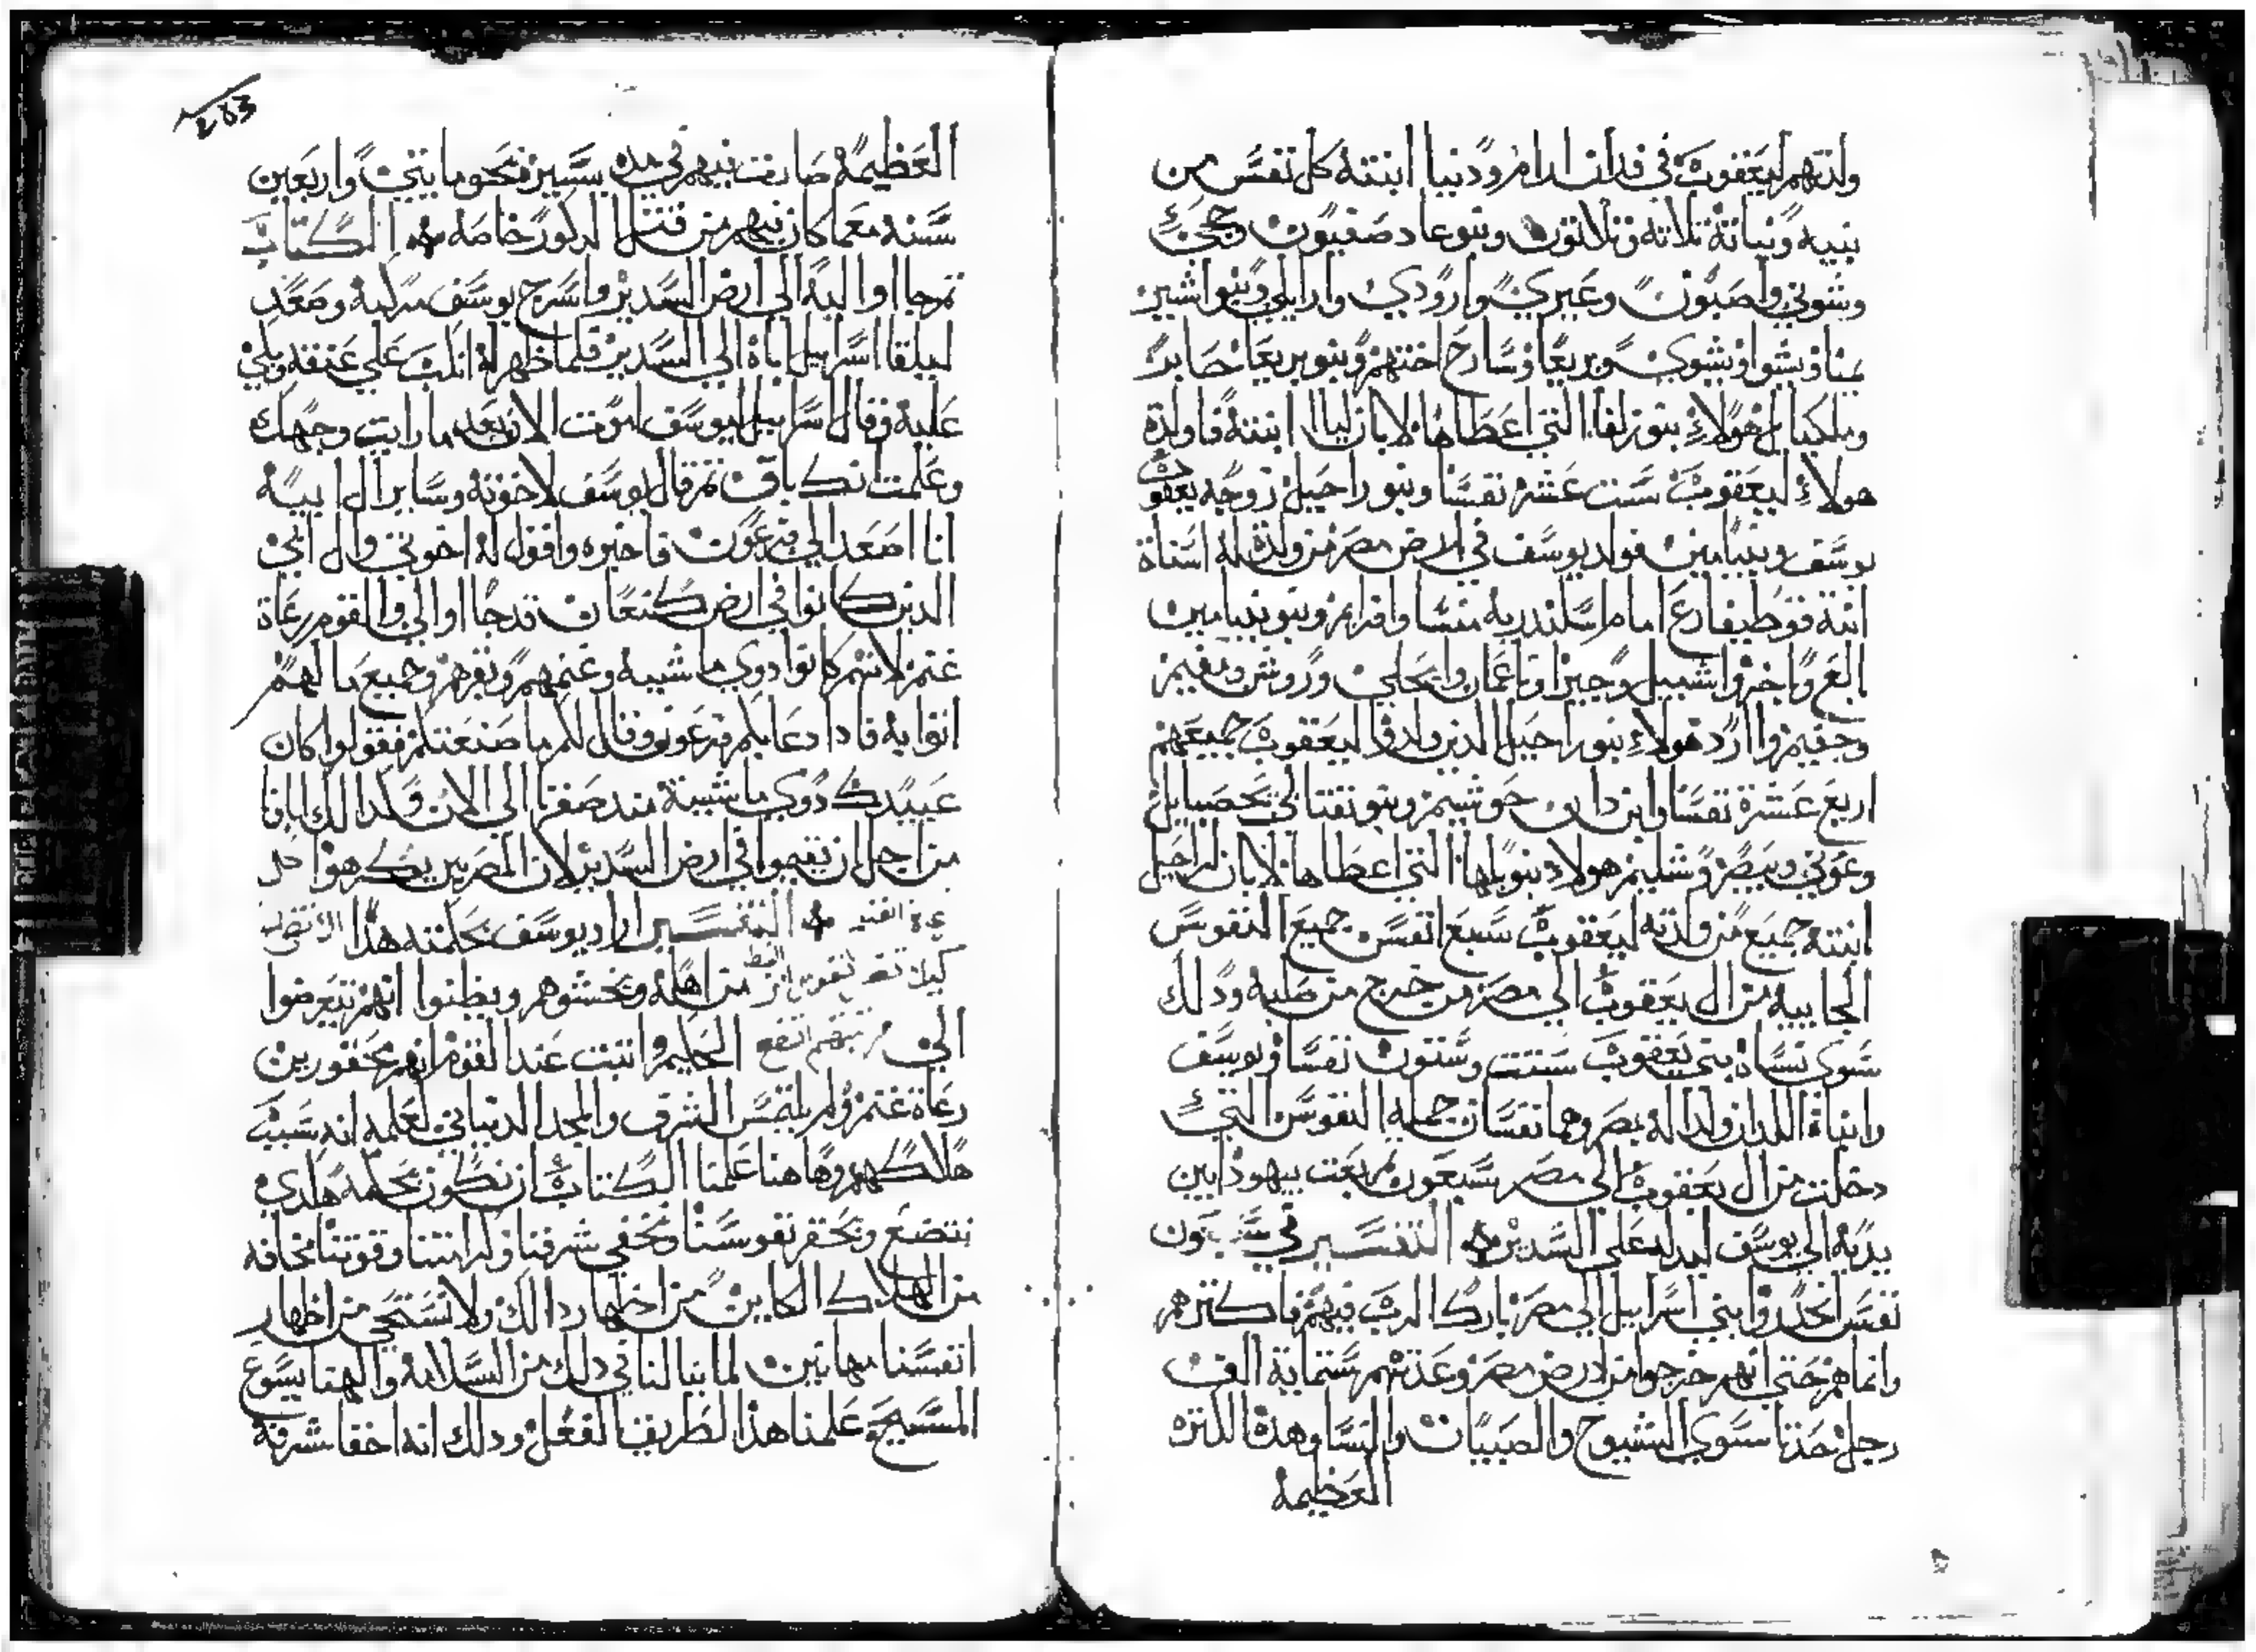 ولدتهم ليعقوب في فدان ارام ودينا ابنته كل نفس من
بنيه وبناته تلاته وتلاتون وبنو عاد صفيون وحجي
وشوني واصبون وعيري وارودي وارايلي وبنو اشير
يمنا ويشوا ويشوي وبريعا وسارح اختهم وبنو بريعا حابر
وملكيال هولاء بنو زلفا التي اعطاها لابان ليا ابنته فاولدة
هولاء ليعقوب ست عشر نفسا وبنو راحيل زوجه يعقوب
يوسف وبنيامين فولد يوسف في ارض مصر من ولدته له اسناة
ابنة فوطيفارع امام اسكندريه منسا وافرايم وبنو بنيامين
بالع وباخر واشبيل وجيرا وناعمان وايحلي وروش ومفيم
وحفيم وارد هولاء بنو راحيل الذين ولدوا ليعقوب جميعهم
اربع عشرة نفسا وابن دان حوشيم وبنو نفتالي يحصيايل
وعوني ويصر وشليم هولاء بنو بلها التي اعطاها لابان لراحيل
ابنته جميع من ولدته ليعقوب سبع انفس جميع النفوس
الجاييه من ال يعقوب الي مصر من خرج من صلبه ودلك
سوي نساء بني يعقوب ستت وستون نفسا ويوسف
وابناة اللدان ولدا له بمصر وهما نفسان جملة النفوس التي
دخلت من ال يعقوب الي مصر سبعون بعت بيهودا بين
يديه الي يوسف ليدله علي السدير التفسير في سبعون
نفس انحدروا بني اسراييل الي مصر بارك الرب فيهم فاكترهم
وانماهم حتي انهم خرجوا من ارض مصر وعدتهم ستماية الف
رجل حدتا سوي الشيوخ والصبيان والنسا وهده الكتره
العظيمه
283
العظيمة صارت بنيهم في مده يسيره نحو مايتين واربعين
سنه مع ما كان بينهم من قتل الدكور خاصه الكتاب
تم جااوا اليه الي ارض السدير واسرج يوسف مركبه وصعد
ليلقا اسراييل اباه الي السدير فلما ظهر له انكب علي عنقه وبكي
عليه وقال اسراييل ليوسف اموت الان بعد ما رايت وجهك
وعلمت انك باق تم قال يوسف لاخوته وساير ال ابيه
انا اصعد الي فرعون فاخبره واقول له اخوتي وال ابي
الدين كانوا في ارض كنعان قد جااوا الي والقوم رعاة
غنم لانهم كانوا دوي ماشيه وغنمهم وبقرهم وجميع مالهم
اتوا به فادا دعا بكم فرعون وقال لكم ما صنعتكم فقولوا كان
عبيدك دوي ماشية مند صغرنا الي الان وكدا لك اباونا
من اجل ان تقيموا في ارض السدير لان المصريين يكرهوا كل
التفسير اراد يوسف بكلمته هدا
من اهله ويحشوهم ويظنوا انهم يتعرضوا
الي الحليم وانبت عند القوم انهم محقورين
رعاة غنم ولم يلتمس الشرف والمجد الدنياني لعلمه انه سبب
هلاكهم وهاهنا علمنا الكتاب ان نكون بحكمة هادي
نتضع ونحقر نفوسنا ونخفي شرفنا وكرامتنا وقوتنا مخافه
من الهلاك الكاين من اظهار دالك ولا نستحي من اظهار
انفسنا مهانين لما ينالنا في دلك من السلامه والهنا يسوع
المسيح علمنا هذا الطريق الفعل ودلك انه اخفا شرفه